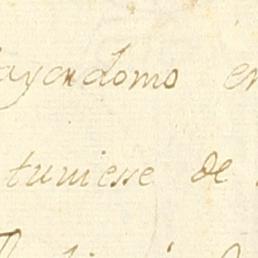 ayordomo en
tuviesse de